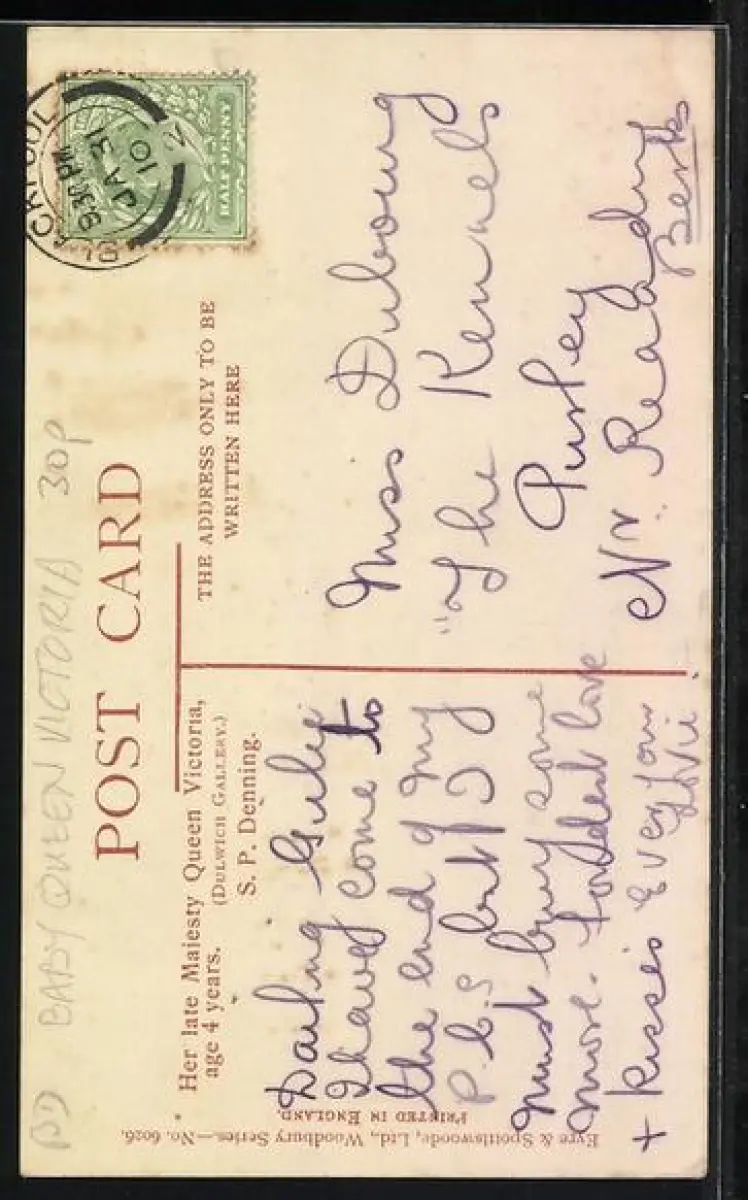 BD BABY QUEEN VICTORIA 30p
POST CARD
Her late Majesty Queen Victoria,
age 4 years. (DULWICH GALLERY.)
S. P. Denning.
THE ADDRESS ONLY TO BE
WRITTEN HERE
HALF PENNY
9.30 PM
JA 31
10
Darling
I have come to
the end of my
P.C.s but I
must buy some
more. Fondest love
+ kisses Ever your
Miss Dubourg
"The Kennels
Pusey
Nr. Reading
Berks
Eyre & Spottiswoode, Ltd., Woodbury Series.—No. 6026.
PRINTED IN ENGLAND.